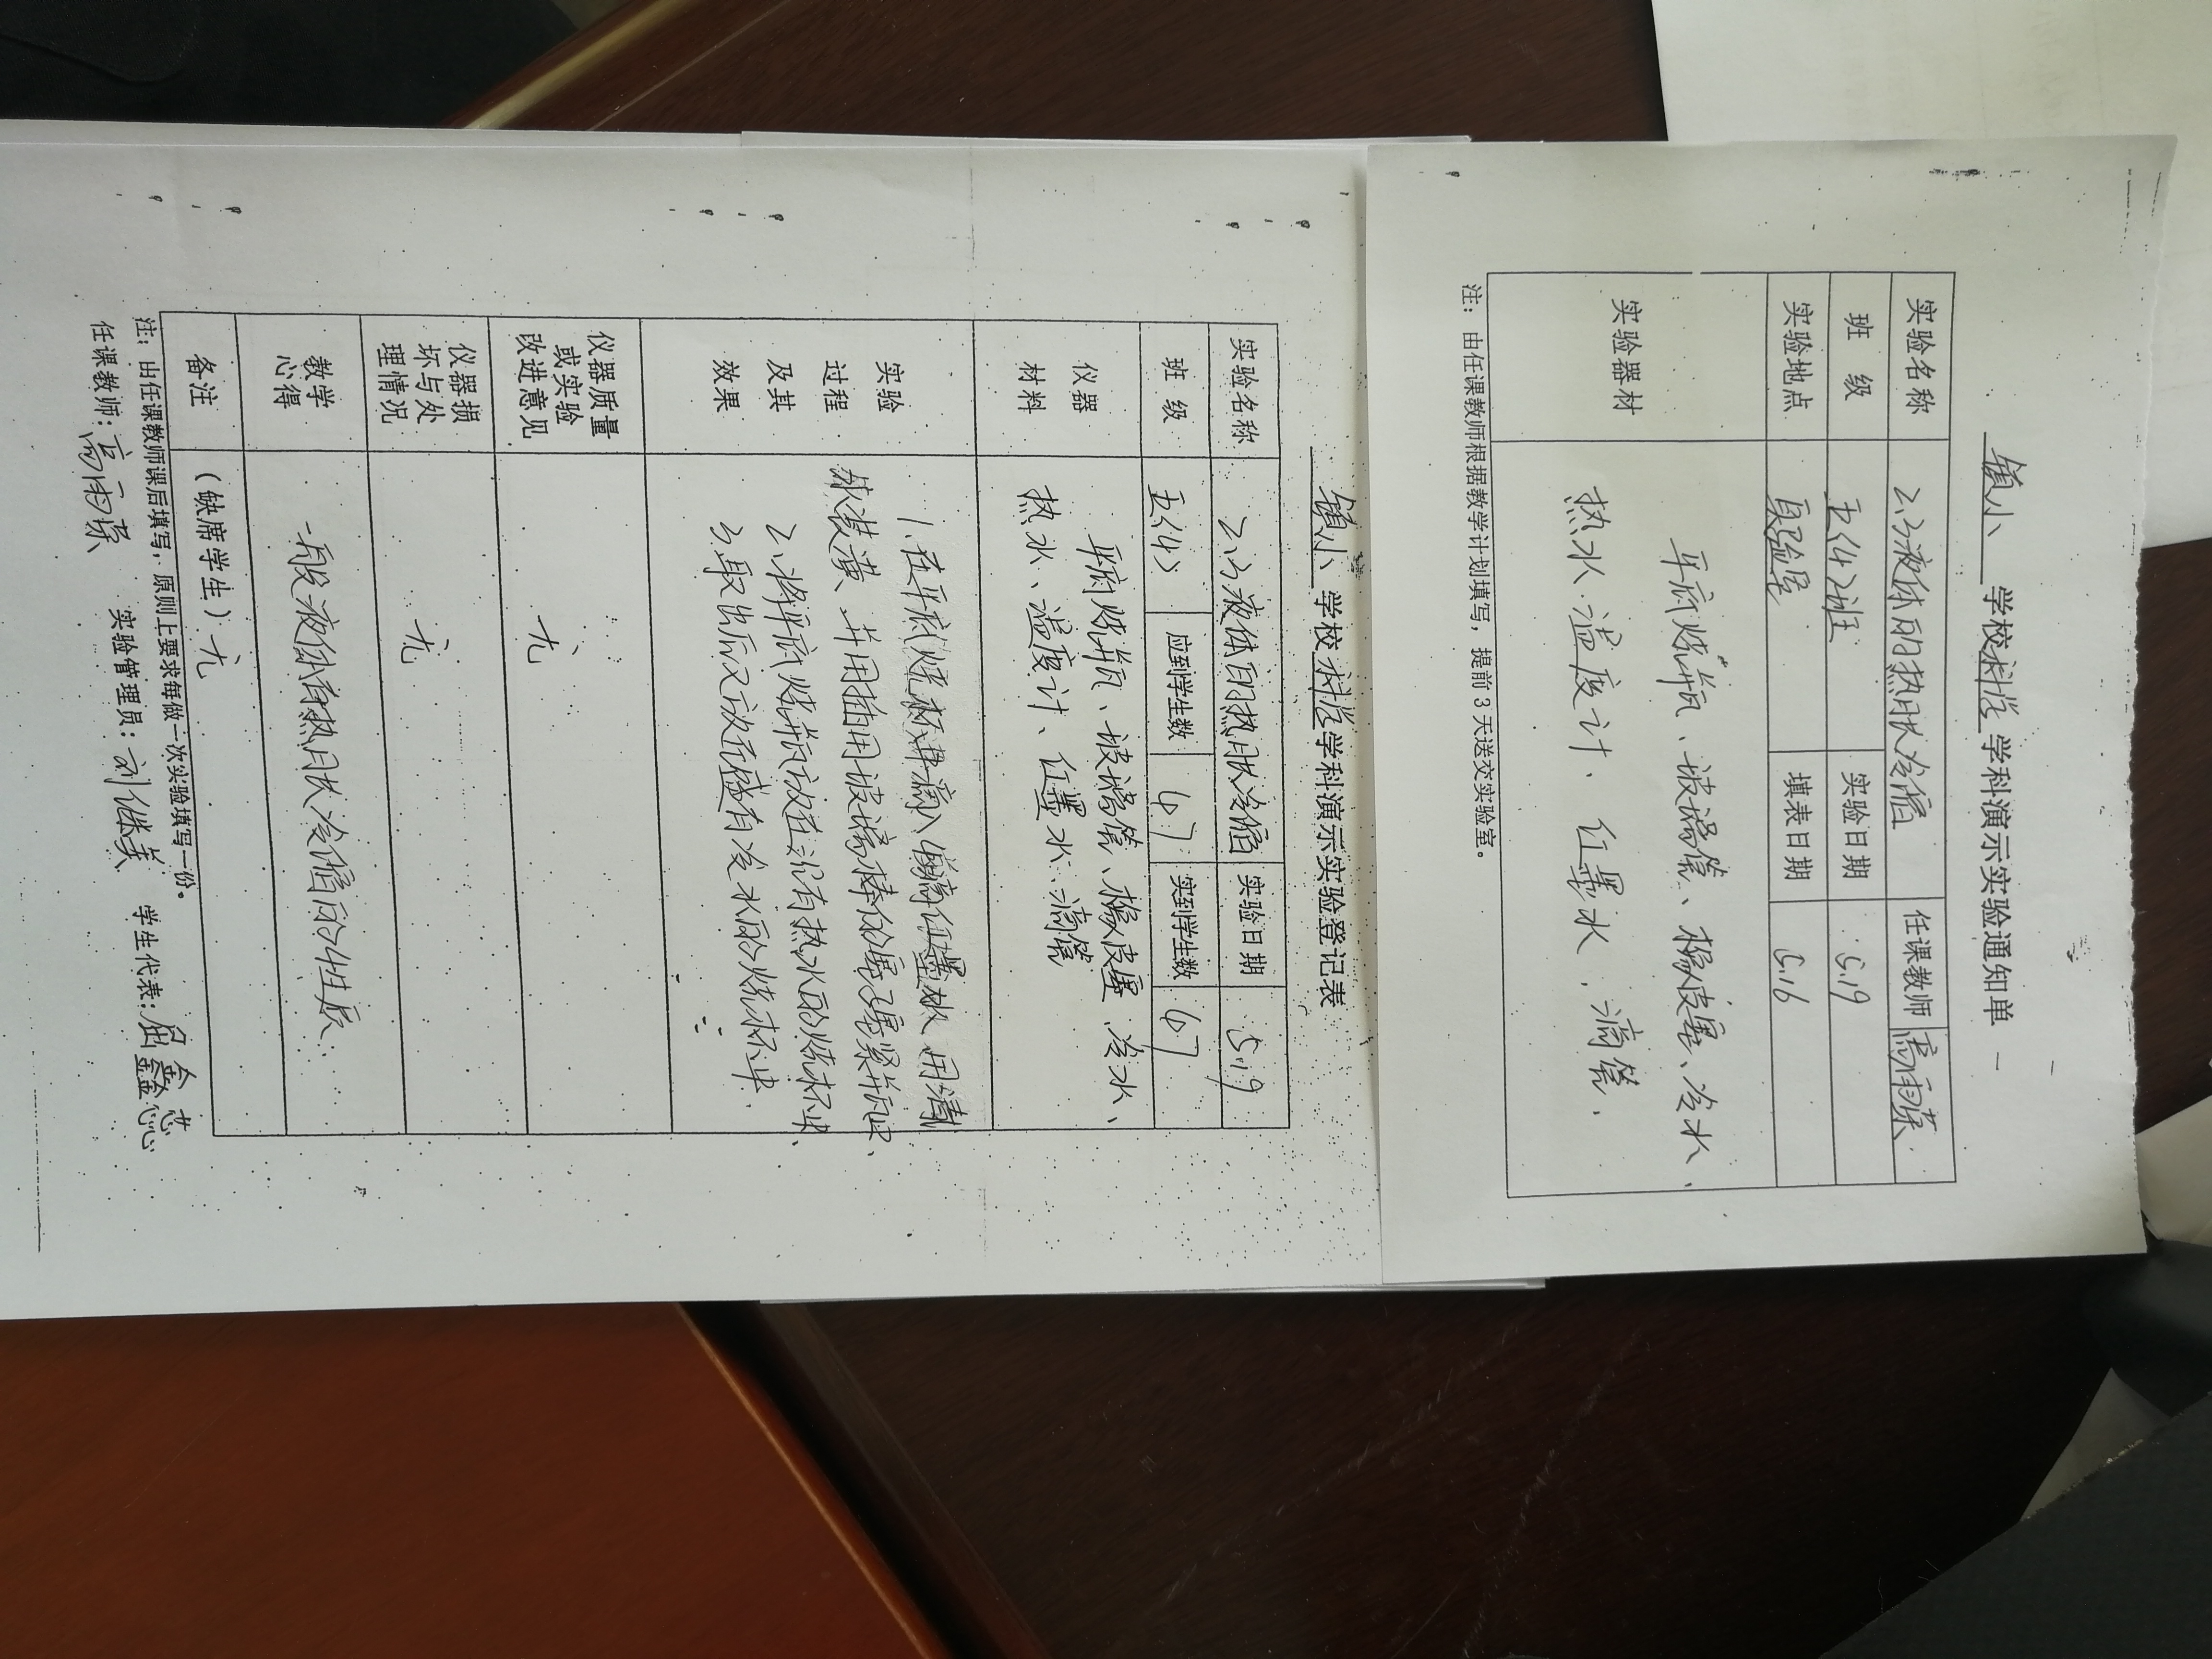 镇小 学校 科学 学科演示实验通知单
实验名称 2.3液体的热胀冷缩 任课教师 高雨荣
班 级 五(4)班 实验日期 5.19
实验地点 实验室 填表日期 5.16
实验器材
平底烧瓶、玻璃管、橡皮塞、冷水、
热水、温度计、红墨水、滴管.
注：由任课教师根据教学计划填写，提前3天送交实验室。
镇小 学校 科学 学科演示实验登记表
实验名称 2.3液体的热胀冷缩 实验日期 5.19
班 级 五(4) 应到学生数 67 实到学生数 67
仪器
材料
平底烧瓶、玻璃管、橡皮塞、冷水、
热水、温度计、红墨水、滴管
实验
过程
及其
效果
1.在平底烧杯中滴入 红墨水 用清
水装满、并用插有玻璃棒的塞子塞紧瓶口、
2.将平底烧瓶放在沉有热水的烧杯中、
3.取出后又立放在盛有冷水的烧杯中.
仪器质量
或实验
改进意见
无
仪器损
坏与处
理情况
无
教学
心得
一般液体有热胀冷缩的性质.
备注 （缺席学生）无
注：由任课教师课后填写，原则上要求每做一次实验填写一份。
任课教师：高雨荣 实验管理员：刘继英 学生代表：屈鑫蕊